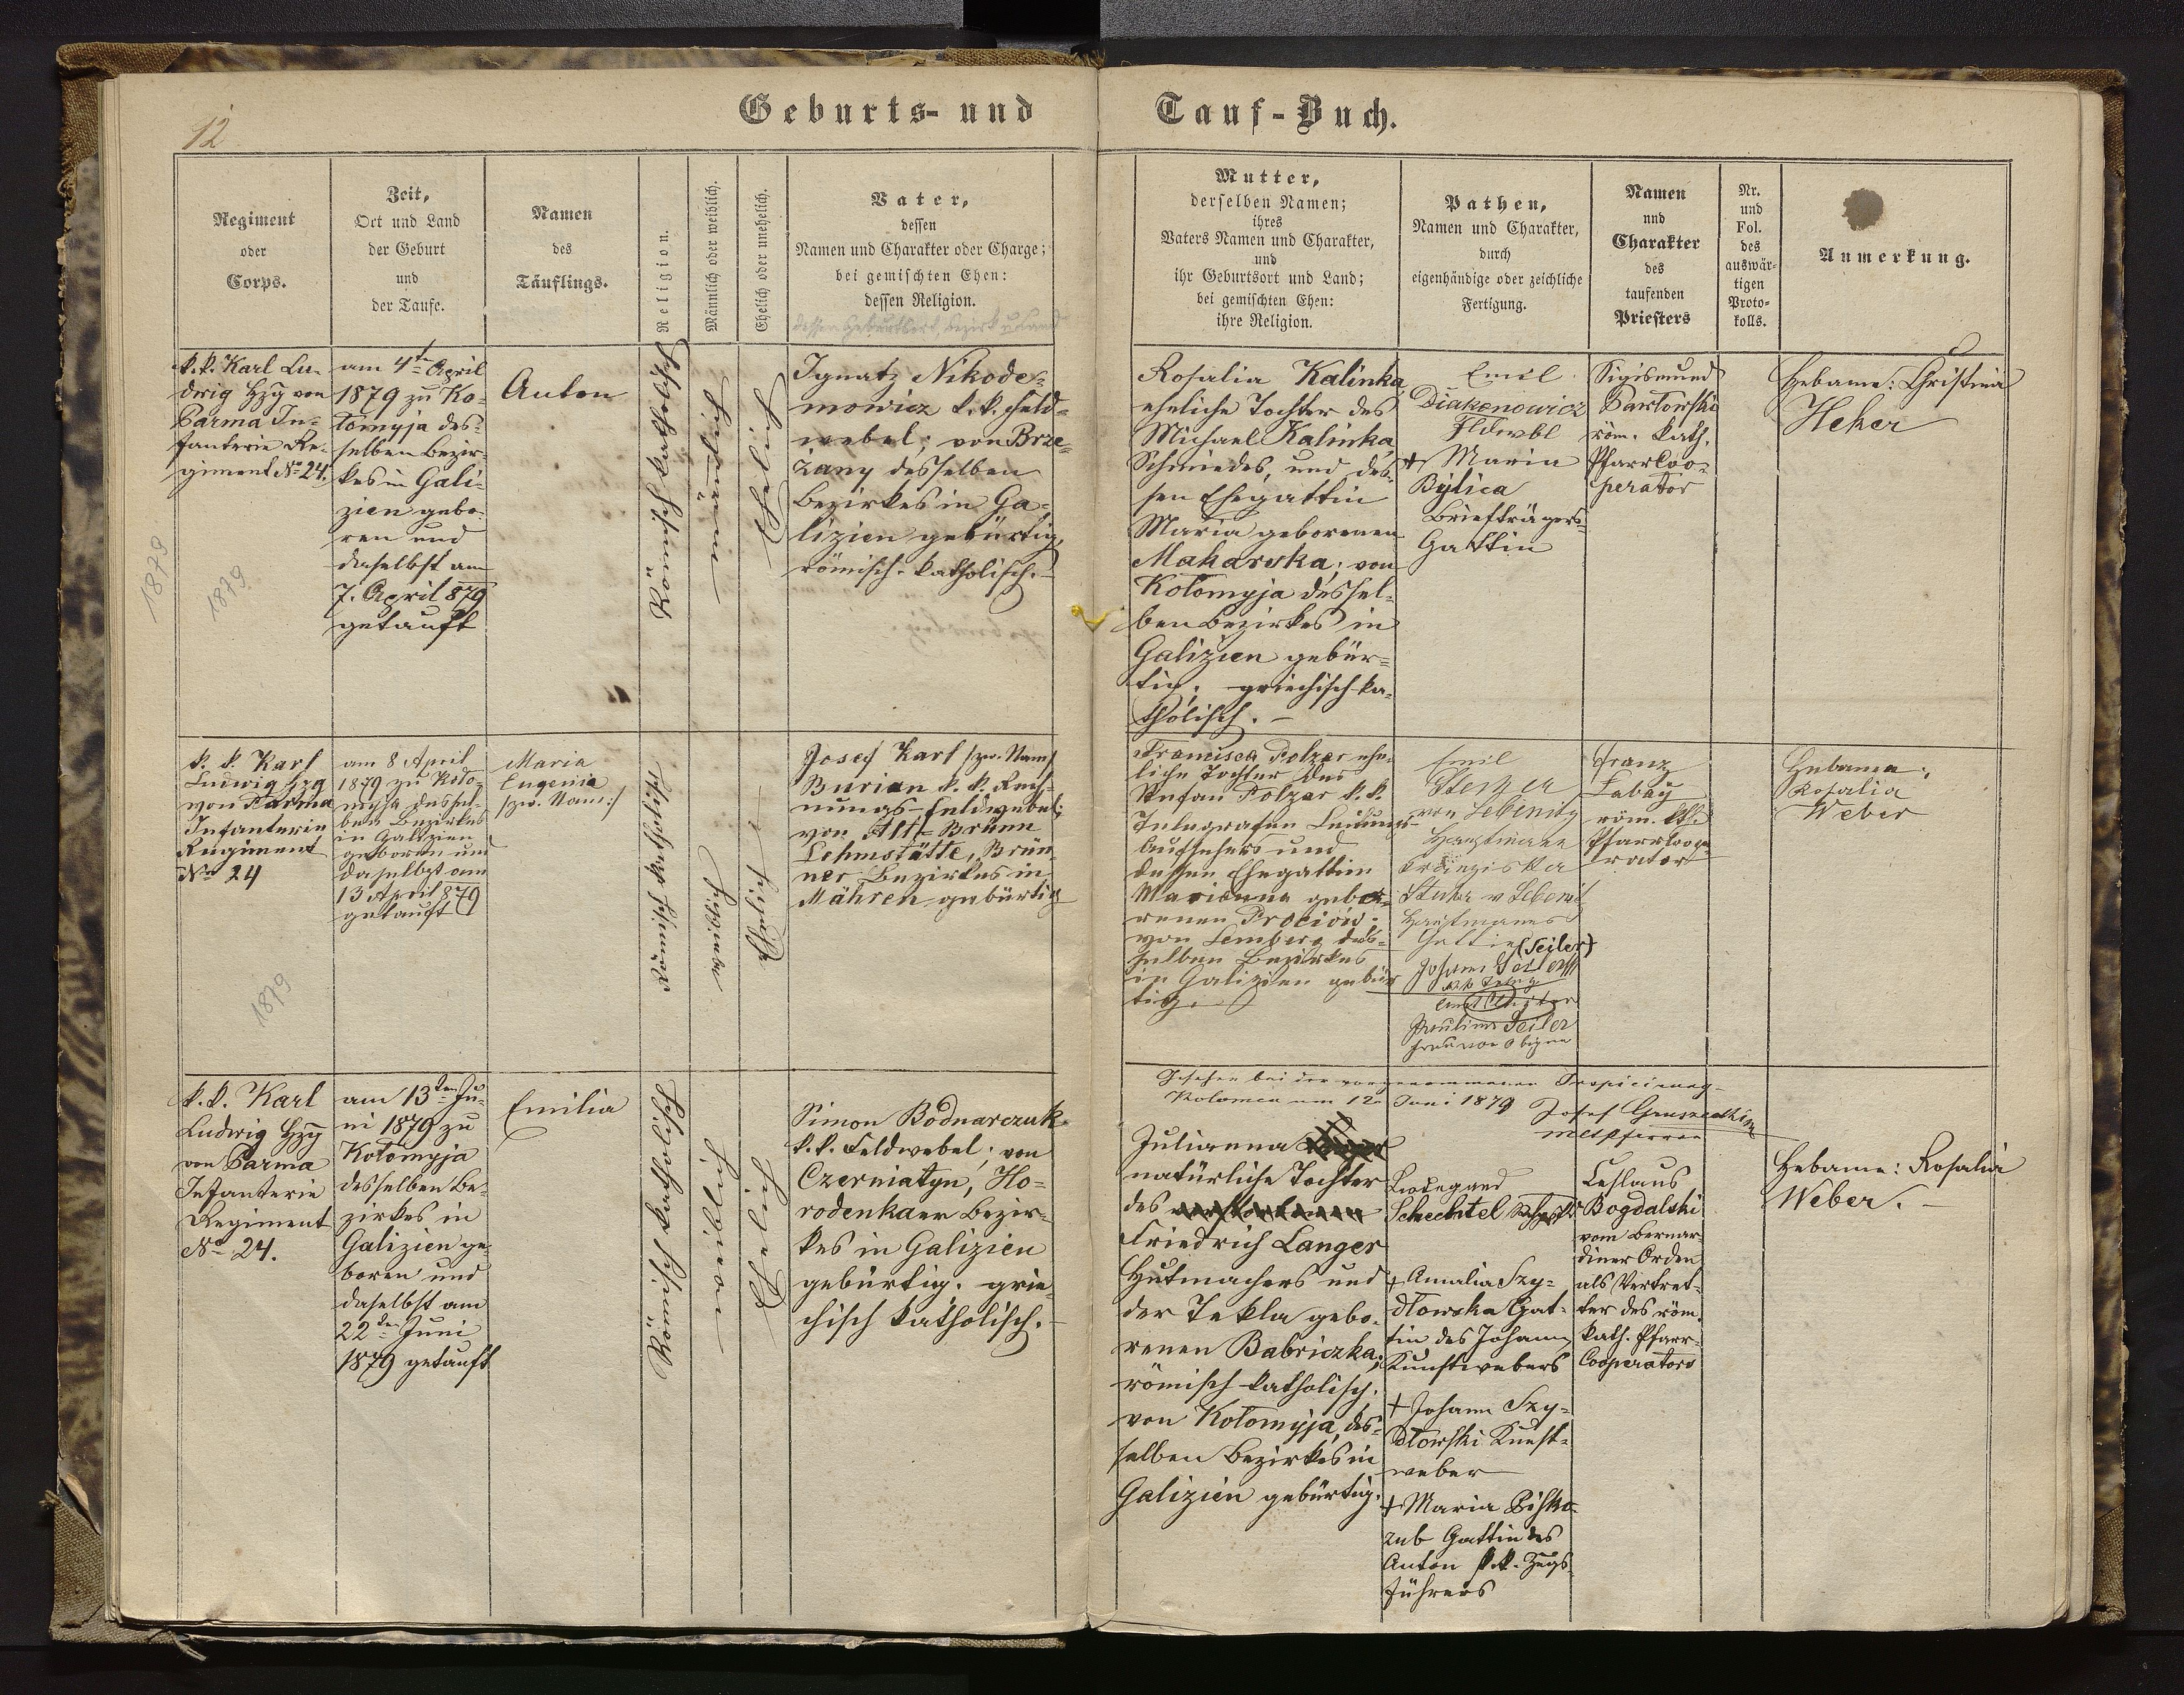 12
Geburts- und Tauf-Buch.
Regiment
oder
Corps.
Zeit,
Ort und Land
der Geburt
und
der Taufe.
Namen
des
Täuflings.
Religion.
Männlich oder weiblich.
Ehelich oder unehelich.
Vater,
dessen
Namen und Charakter oder Charge;
bei gemischten Ehen:
dessen Religion.
dessen Geburtsort, Bezirk u. Land
Mutter,
derselben Namen;
ihres
Vaters Namen und Charakter,
und
ihr Geburtsort und Land;
bei gemischten Ehen:
ihre Religion.
Pathen,
Namen und Charakter,
durch
eigenhändige oder zeichliche
Fertigung.
Namen
und
Charakter
des
taufenden
Priesters
Nr.
und
Fol.
des
auswär-
tigen
Proto-
kolls.
Anmerkung.
k. k. Karl Lu-
dwig Hzg von
Parma In-
fanterie Re-
giment No 24.
1879
1879
am 4ten April
1879 zu Ko-
lomyja des-
selben Bezir-
kes in Gali-
zien gebo-
ren und
daselbst am
7. April 879
getauft
Anton
Römisch katholisch
Ehelich
Ignatz Nikode-
mowicz k. k. Feld-
webel; von Brze-
żany desselben
Bezirkes in Ga-
lizien gebürtig,
römisch-katholisch.
Rosalia Kalinka
eheliche Tochter des
Michael Kalinka,
Schmiedes, und des-
sen Ehegattin
Maria geborenen
Makarska; von
Kołomyja dessel-
ben Bezirkes in
Galizien gebür-
tig; griechisch-ka-
tholisch.
Emil
Diakonowicz
Fldwbl
+ Maria
Bylica
Briefträgers-
Gattin
Sigismund
Pawłowski
röm. kath.
Pfarrcoo-
perator
Hebame: Christina
Heker
k. k. Karl
Ludwig Hzg
von Parma
Infanterie
Regiment
No 24
1879
am 8 April
1879 zu Koło-
myja dessel-
ben Bezirkes
in Galizien
geboren und
daselbst am
13 April 879
getauft
Maria
Eugenia
/zw. Nam:/
Römisch katholisch
Ehelich
Josef Karl /zw. Nam/
Burian k. k. Rech-
nungs-Feldwebel;
von Alt-Brünn
Lehmstätte, Brün-
ner Bezirkes in
Mähren gebürtig
Francisca Polzer ehe-
liche Tochter des
Stefan Polzer k. k.
Telegrafen Leitungs-
Aufsehers und
dessen Ehegattin
Marianna gebo-
renen Prociów;
von Lemberg des-
selben Bezirkes
in Galizien gebür
tig.
Emil
von Lebenitz
Hauptmann
Hauptmanns
Gattin
(Seiler)
Johann Seiler
Pauline Seiler
Frau von Obigen
Franz
Łabay
röm. kth.
Pfarrcoope
rator
Hebame:
Rosalia
Weber
Gesehen bei der vorgenommenen
Kolomea am 12 Juni 1879
k. k. Karl
Ludwig Hzg
von Parma
Infanterie
Regiment
No 24.
am 13ten Ju-
ni 1879 zu
Kołomyja
desselben Be-
zirkes in
Galizien ge-
boren und
daselbst am
22ten Juni
1879 getauft
Emilia
Römisch katholisch
Ehelich
Simon Bodnarczuk
k. k. Feldwebel; von
Czerniatyn, Ho-
rodenkaer Bezir-
kes in Galizien
gebürtig. grie-
chisch katholisch.
Julianna
natürliche Tochter
des
Friedrich Langer
Hutmachers und
der Tekla gebo-
renen Babriczka;
römisch katholisch.
von Kołomyja, des-
selben Bezirkes in
Galizien gebürtig.
Schechtel
+ Amalia Szy-
dłowska Gat-
tin des Johann
Kunstwebers
+ Johann Szy-
dłowski Kunst-
weber
+ Maria
zub Gattin des
Anton k. k. Zugs-
führers
Ceslaus
Bogdalski
vom Bernar-
diner Orden
als Vertret-
ter des röm.
kath. Pfarr-
Cooperators
Hebame: Rosalia
Weber.